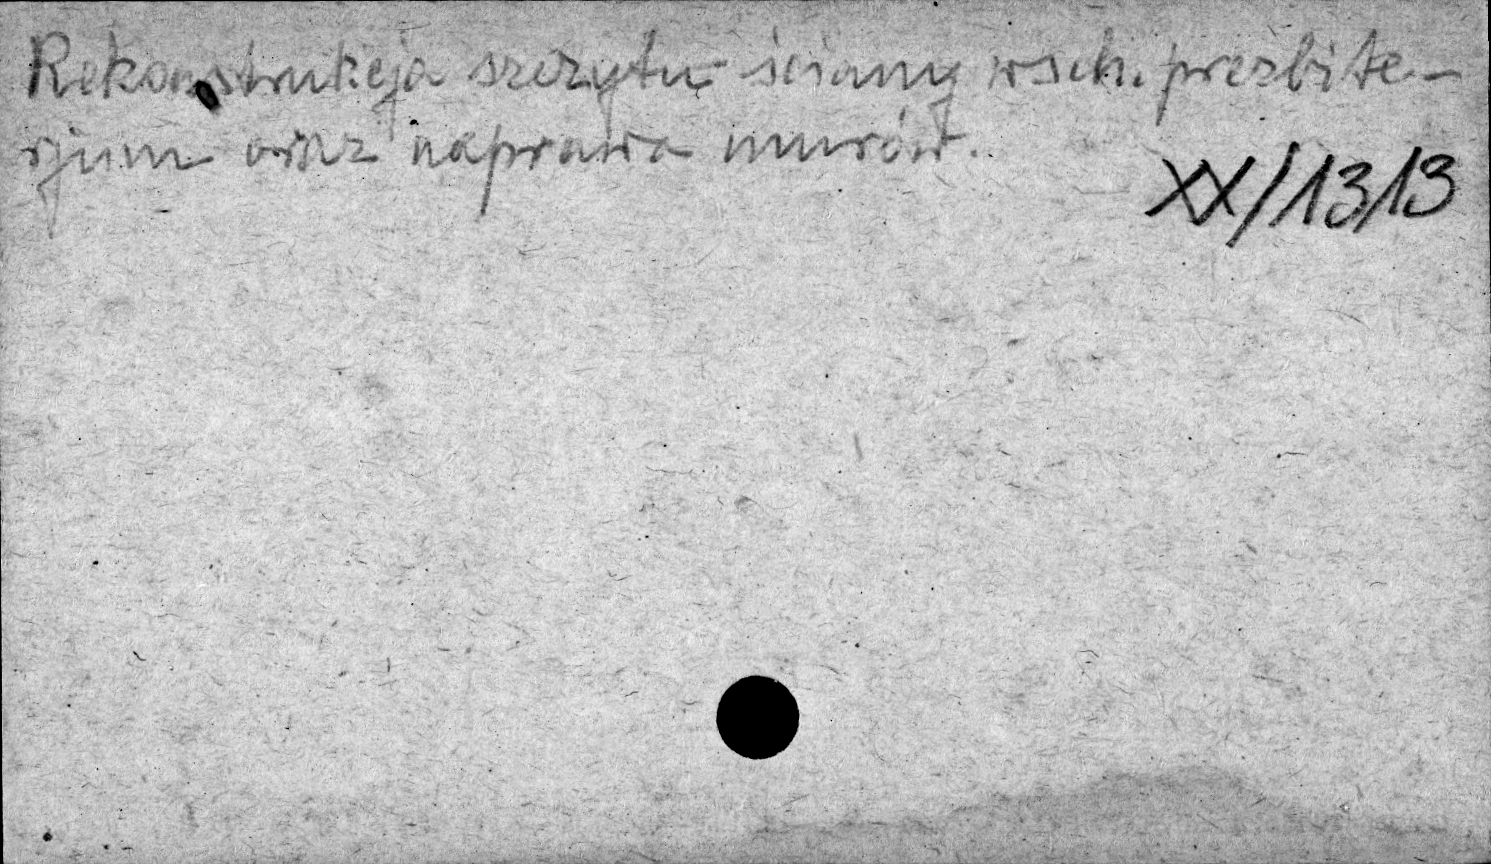 Rekonstrukcja szczytu ściany wsch. prezbite-
rjum oraz naprawa murów.
XX/1313